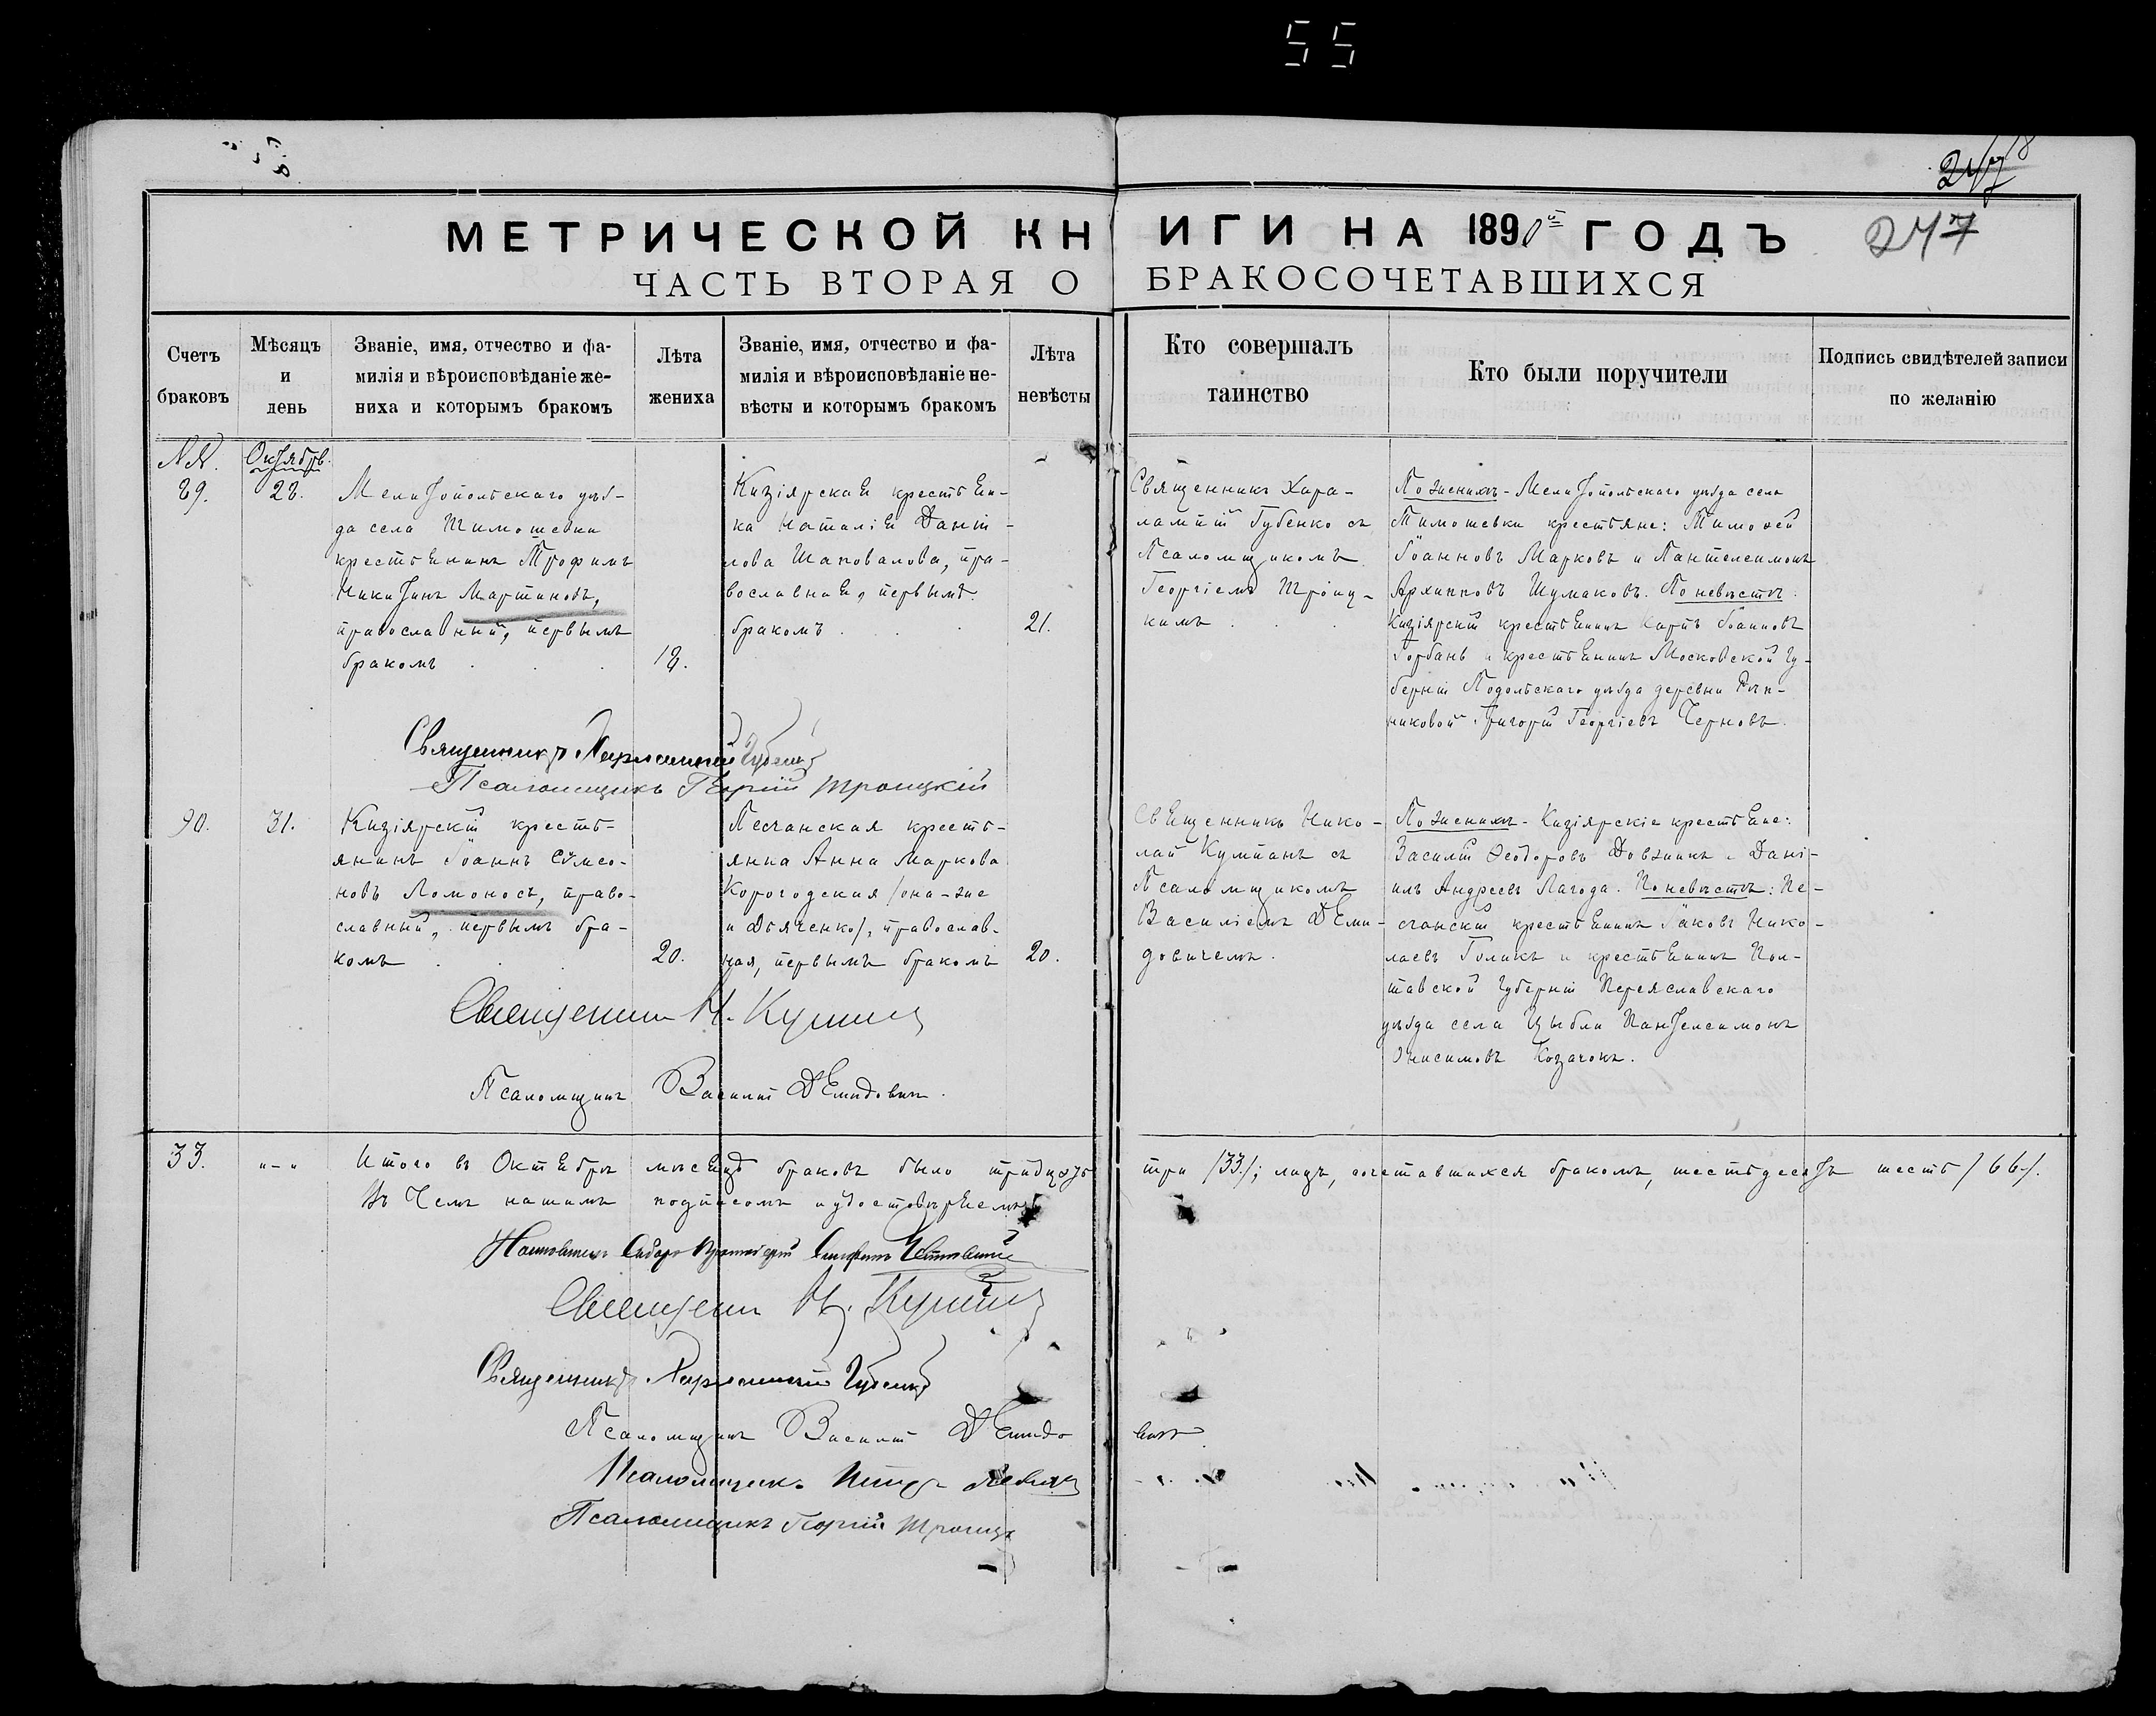 55
247
МЕТРИЧЕСКОЙ КНИГИ НА 1890й ГОДЪ
247
ЧАСТЬ ВТОРАЯ О БРАКОСОЧЕТАВШИХСЯ
Счетъ
браковъ
Мѣсяцъ
и
день
Званіе, имя, отчество и фа-
милія и вѣроисповѣданіе же-
ниха и которымъ бракомъ
Лѣта
жениха
Званіе, имя, отчество и фа-
милія и вѣроисповѣданіе не-
вѣсты и которымъ бракомъ
Лѣта
невѣсты
Кто совершалъ
таинство
Кто были поручители
Подпись свидѣтелей записи
по желанію
Октябрь.
89.
28.
Мелитопольскаго уѣз-
да села Тимошевки
крестьянинъ Трофимъ
Никитинъ Мартиновъ,
православный, первымъ
бракомъ
18.
Кизіярская крестьян-
ка Наталія Даніи-
лова Шаповалова, пра-
вославная, первымъ
бракомъ
21.
Священникъ Хара-
лампій Губенко съ
Псаломщикомъ
Георгіемъ Троиц-
кимъ
По женихѣ - Мелитопольскаго уѣзда села
Тимошевки крестьяне: Тимофей
Іоанновъ Марковъ и Пантелеимонъ
Архиповъ Шумаковъ. По невѣстѣ:
Кизіярскій крестьянинъ Карпъ Іоанновъ
Горбань и крестьянинъ Московской Гу-
берніи Подольскаго уѣзда деревни
никовой Григорій Георгіевъ Черновъ.
Священникъ Харлампій Губенко
Псаломщикъ Георгій Троицкій
90.
31.
Кизіярскій кресть-
янинъ Іоаннъ Сѵмео-
новъ Ломоносъ, право-
славный, первымъ бра-
комъ
20.
Песчанская кресть-
янка Анна Маркова
Корогодская /она-же
и Дьяченко/, православ-
ная, первымъ бракомъ
20.
Священникъ Нико-
лай Кумпанъ съ
Псаломщикомъ
Василіемъ Деми-
довичемъ.
По женихѣ - Кизіярскіе крестьяне:
Василій Ѳеодоровъ Довжикъ и Дані-
илъ Андреевъ Лагода. По невѣстѣ: Пе-
счанскій крестьянинъ Іаковъ Нико-
лаевъ Голикъ и крестьянинъ Пол-
тавской Губерніи Переяславскаго
уѣзда села Цыбли Пантелеимонъ
Онисимовъ Козачокъ.
Священникъ Н. Кумпанъ
Псаломщикъ Василій Демидовичъ.
33.
"-"
Итого въ Октябрѣ мѣсяцѣ браковъ было тридцать три /33/; лицъ, сочетавшихся бракомъ, шестьдесятъ шесть /66/.
Въ чемъ нашимъ подписомъ и удостовѣряемъ
Настоятель Собора Протоіерей
Священникъ Н. Кумпанъ
Священникъ Харлампій Губенко
Псаломщикъ Василій Демидовичъ
Псаломщикъ Петръ
Псаломщикъ Георгій Троицкій